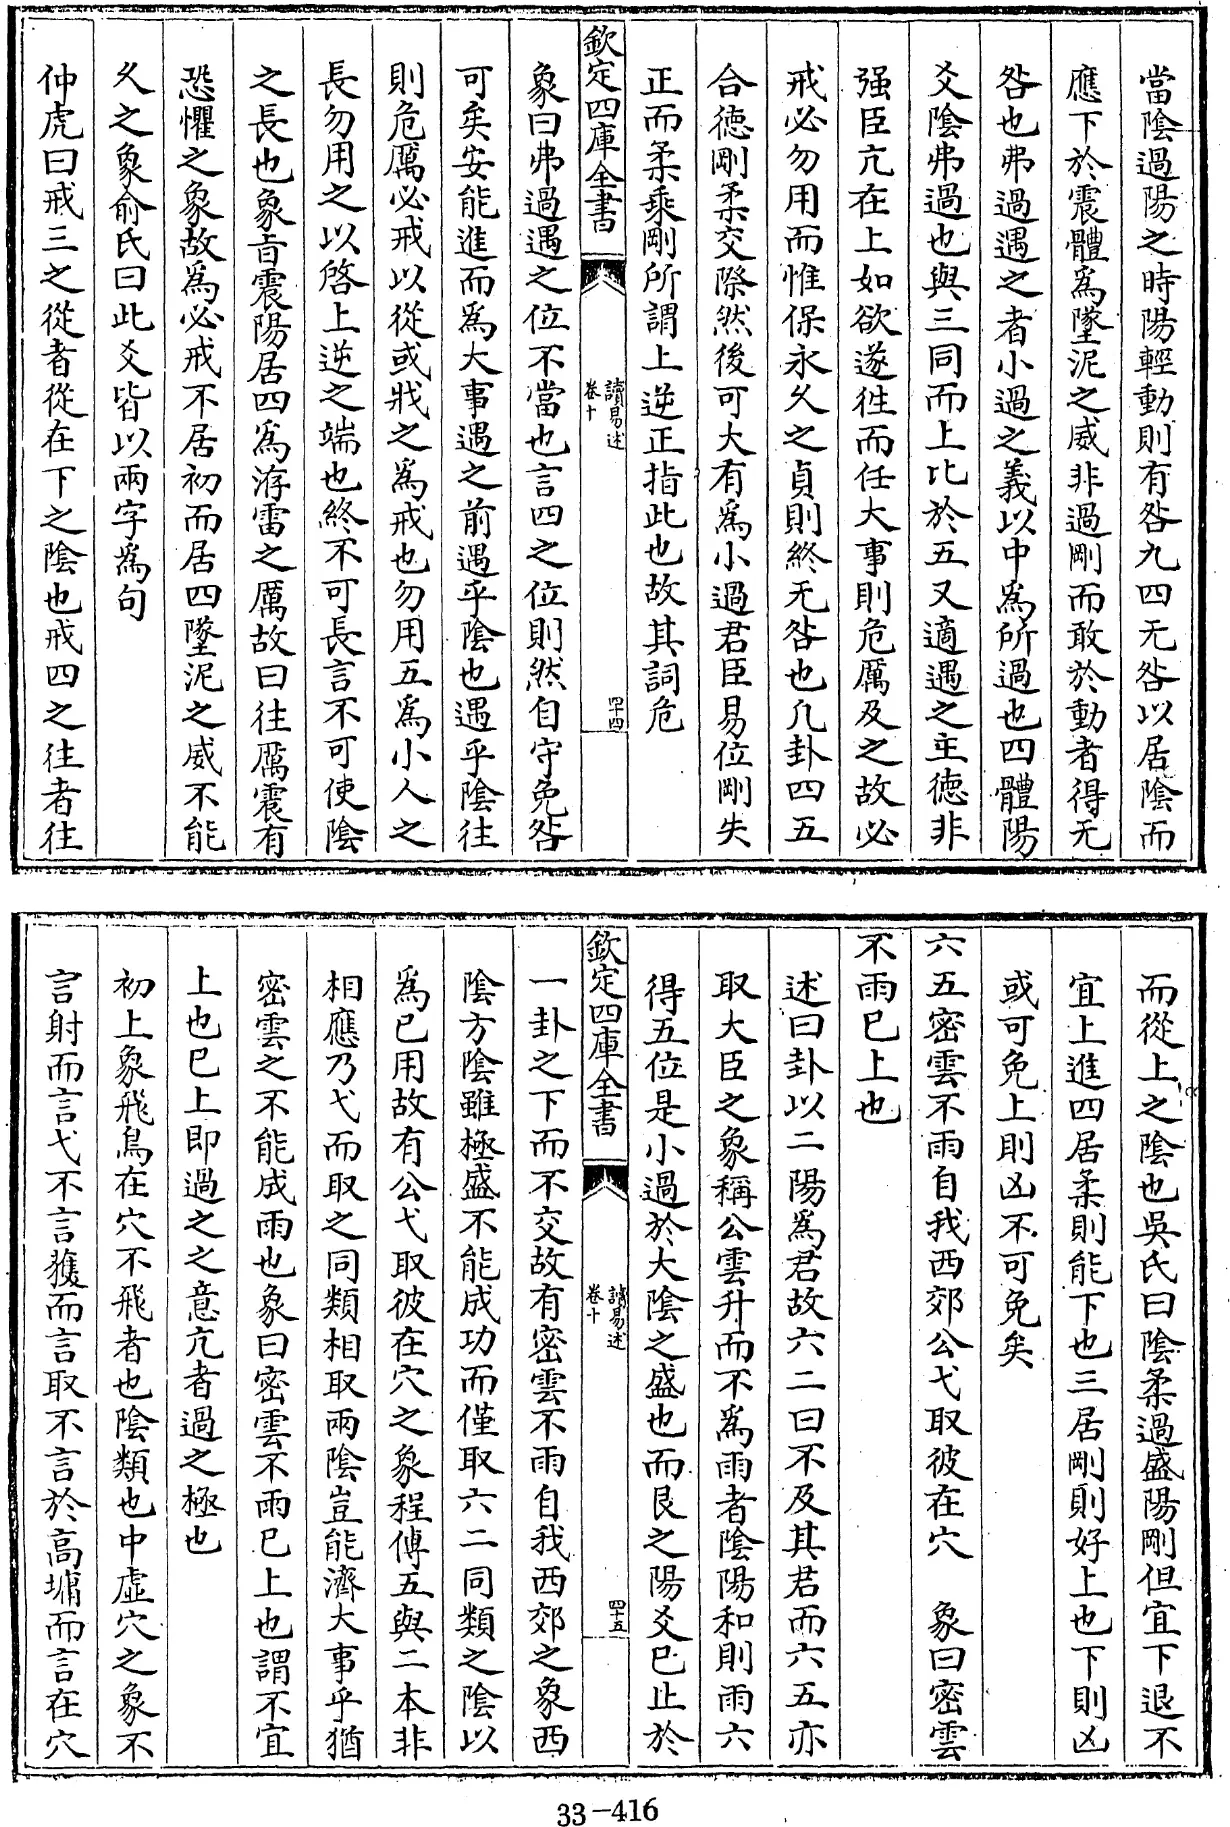 當陰過陽之時陽輕動則有咎九四无咎以居陰而
應下於震體為墜泥之威非過剛而敢於動者得无
咎也弗過遇之者小過之義以中為所過也四體陽
爻陰弗過也與三同而上比於五又適遇之主德非
强臣亢在上如欲遂徃而任大事則危厲及之故必
戒必勿用而惟保永久之貞則終无咎也凡卦四五
合德剛柔交際然後可大有為小過君臣易位剛失
正而柔乘剛所謂上逆正指此也故其詞危
欽定四庫全書
讀易述
卷十
四十四
象曰弗過遇之位不當也言四之位則然自守免咎
可矣安能進而為大事遇之前遇乎陰也遇乎陰往
則危厲必戒以從或戕之為戒也勿用五為小人之
長勿用之以啓上逆之端也終不可長言不可使陰
之長也象旨震陽居四為洊雷之厲故曰往厲震有
恐懼之象故為必戒不居初而居四墜泥之威不能
久之象俞氏曰此爻皆以兩字為句
仲虎曰戒三之從者從在下之陰也戒四之往者往
而從上之陰也吳氏曰陰柔過盛陽剛但宜下退不
宜上進四居柔則能下也三居剛則好上也下則凶
或可免上則凶不可免矣
六五密雲不雨自我西郊公弋取彼在穴 象曰密雲
不雨已上也
述曰卦以二陽為君故六二曰不及其君而六五亦
取大臣之象稱公雲升而不為雨者陰陽和則雨六
得五位是小過於大陰之盛也而艮之陽爻已止於
欽定四庫全書
讀易述
卷十
四十五
一卦之下而不交故有密雲不雨自我西郊之象西
陰方陰雖極盛不能成功而僅取六二同類之陰以
為已用故有公弋取彼在穴之象程傳五與二本非
相應乃弋而取之同類相取兩陰豈能濟大事乎猶
密雲之不能成雨也象曰密雲不雨已上也謂不宜
上也已上即過之之意亢者過之極也
初上象飛鳥在穴不飛者也陰類也中虛穴之象不
言射而言弋不言獲而言取不言於高墉而言在穴
33-416